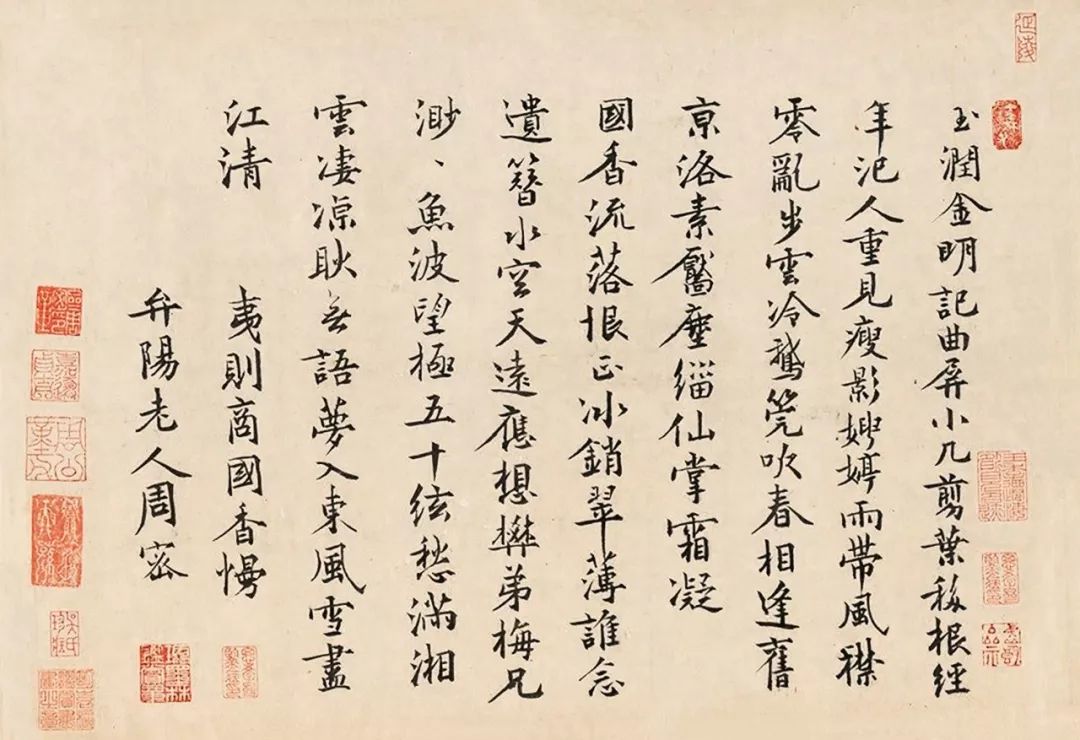 玉潤金明記曲屏小几剪葉移根經
年汜人重見瘦影娉婷雨帶風襟
零亂步雲冷鵞筦吹春相逢舊
京洛素靨塵緇仙掌霜凝
國香流落恨正冰銷翠薄誰念
遺簪水空天遠應想樊弟梅兄
渺、魚波望極五十絃愁滿湘
雲凄凉耿無語夢入東風雪盡
江清
夷則商國香慢
弁陽老人周密